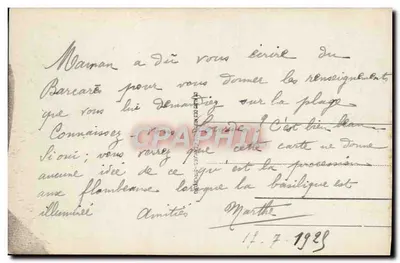 Maman a dû vous écrire du
Barcarès pour vous donner les renseignements
que vous lui demandiez sur la plage
Connaissez-vous ? C'est bien
vous voyez que cette carte ne donne
aucune idée de ce qu'est la procession
aux flambeaux lorsque la basilique est
illuminée Amitiés Marthe
17-7-1925